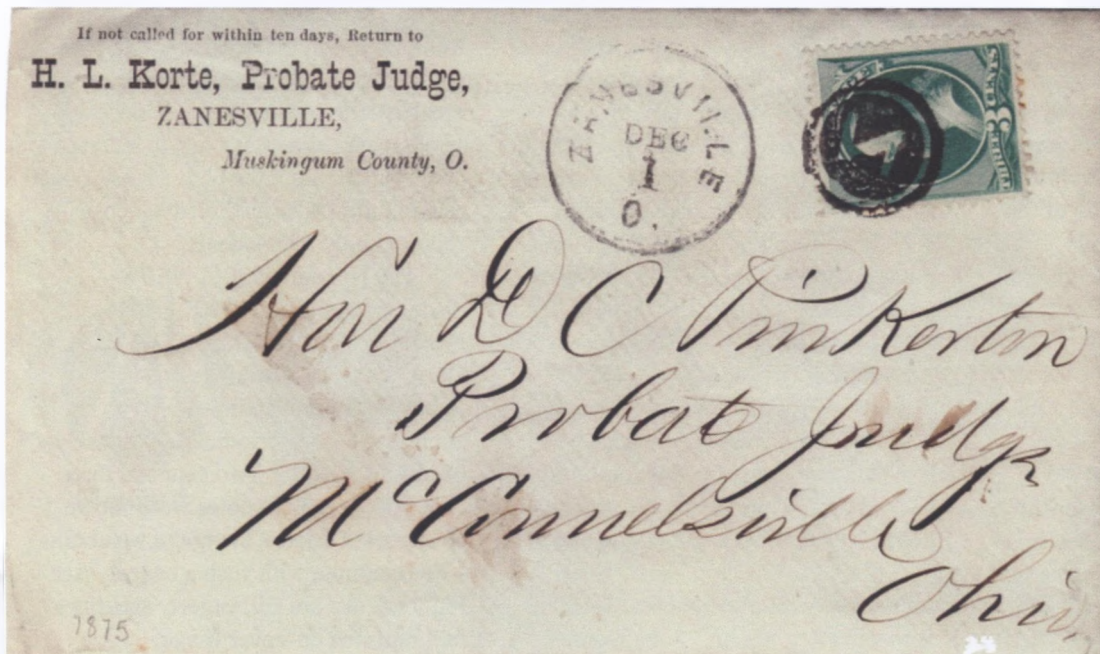 If not called for within ten days, Return to
H. L. Korte, Probate Judge,
ZANESVILLE,
Muskingum County, O.
ZANESVILLE
DEC
1
O.
3
Hon D C Pinkerton
Probate Judge
McConnelsville
Ohio,
1875
24